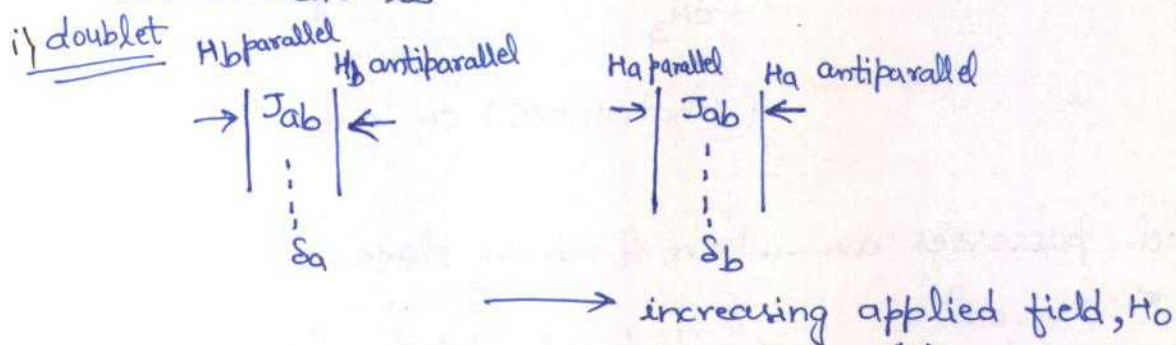 i) doublet
Hb parallel Hb antiparallel Ha parallel Ha antiparallel
Jab Jab
δa δb
increasing applied field, H0